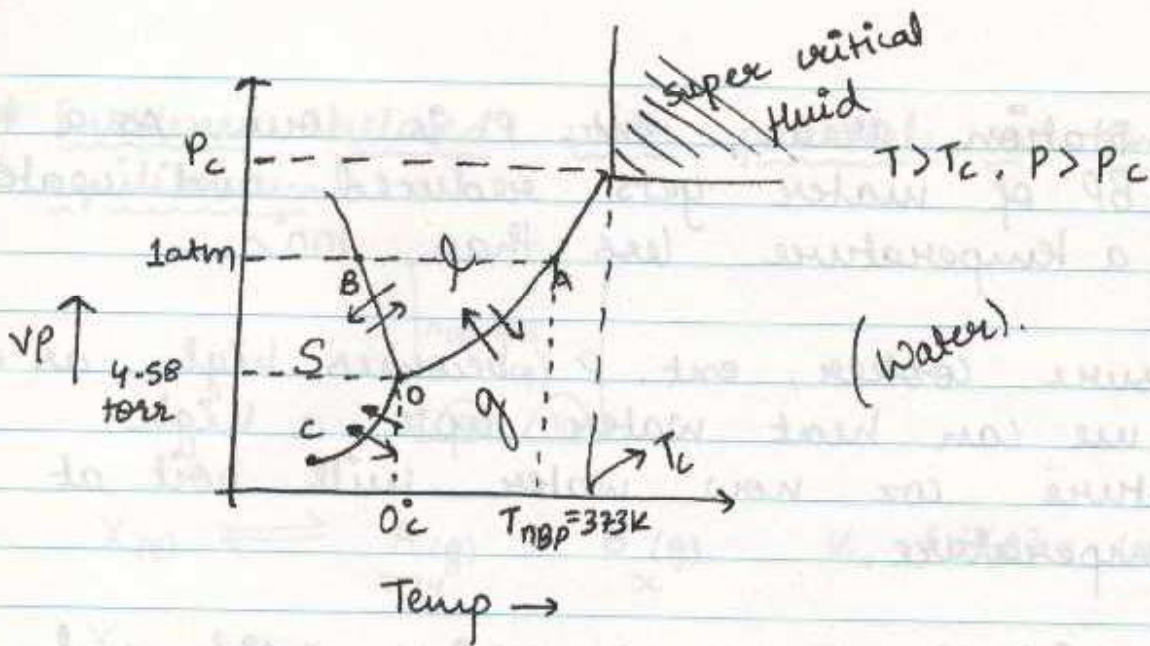 super critical
fluid
Pc
T > Tc, P > Pc
1atm
B
l
A
VP
S
4.58
torr
O
g
(Water).
C
Tc
0°C
TnBP = 373K
Temp →